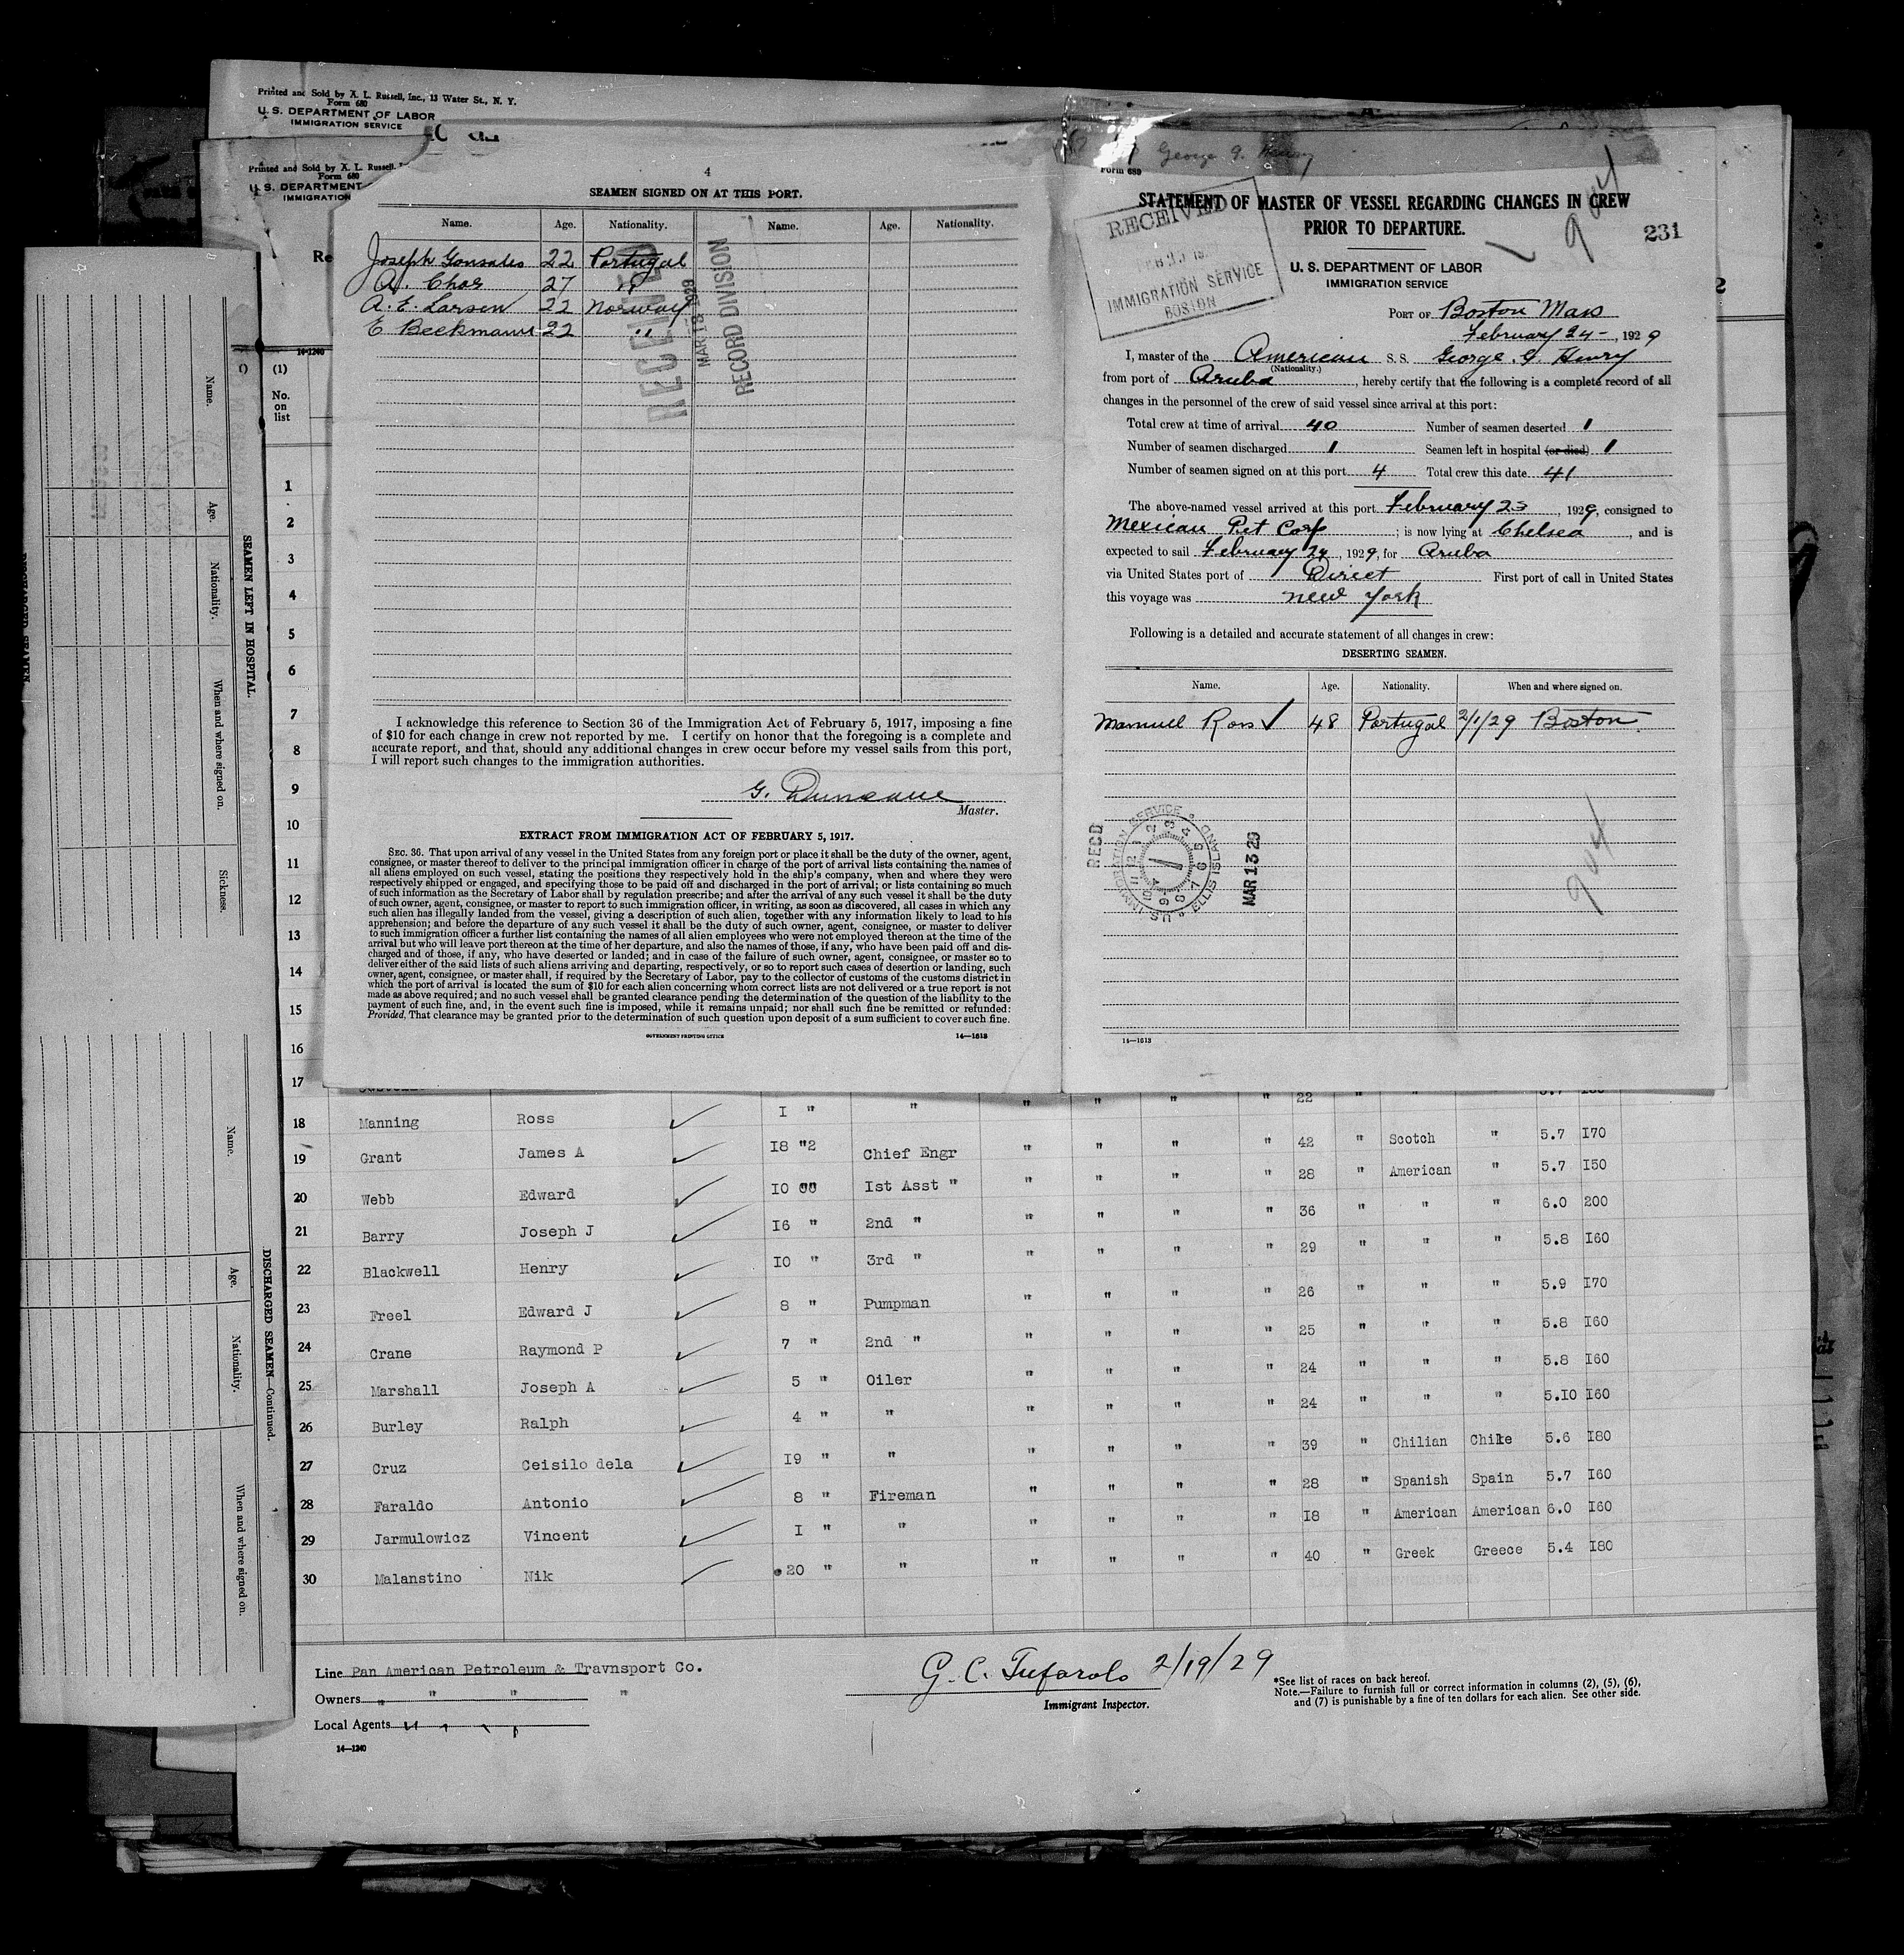 Printed and Sold by A. L. Russell, Inc., 13 Water St., N. Y.
Form 680
U. S. DEPARTMENT OF LABOR
IMMIGRATION SERVICE
Printed and Sold by A. L. Russell,
Form 680
U. S. DEPARTMENT
IMMIGRATION
4
SEAMEN SIGNED ON AT THIS PORT.
Name. Age. Nationality. Name. Age. Nationality.
Joseph Gonsales 22 Portugal
A. Chas 27 "
A. E. Larsen 22 Norway
E Beekmann 22 "
RECEIVED
MAR 13 1929
RECORD DIVISION
I acknowledge this reference to Section 36 of the Immigration Act of February 5, 1917, imposing a fine
of $10 for each change in crew not reported by me. I certify on honor that the foregoing is a complete and
accurate report, and that, should any additional changes in crew occur before my vessel sails from this port,
I will report such changes to the immigration authorities.
G. Duncanne
Master.
EXTRACT FROM IMMIGRATION ACT OF FEBRUARY 5, 1917.
SEC. 36. That upon arrival of any vessel in the United States from any foreign port or place it shall be the duty of the owner, agent,
consignee, or master thereof to deliver to the principal immigration officer in charge of the port of arrival lists containing the names of
all aliens employed on such vessel, stating the positions they respectively hold in the ship's company, when and where they were
respectively shipped or engaged, and specifying those to be paid off and discharged in the port of arrival; or lists containing so much
of such information as the Secretary of Labor shall by regulation prescribe; and after the arrival of any such vessel it shall be the duty
of such owner, agent, consignee, or master to report to such immigration officer, in writing, as soon as discovered, all cases in which any
such alien has illegally landed from the vessel, giving a description of such alien, together with any information likely to lead to his
apprehension; and before the departure of any such vessel it shall be the duty of such owner, agent, consignee, or master to deliver
to such immigration officer a further list containing the names of all alien employees who were not employed thereon at the time of the
arrival but who will leave port thereon at the time of her departure, and also the names of those, if any, who have been paid off and dis-
charged and of those, if any, who have deserted or landed; and in case of the failure of such owner, agent, consignee, or master so to
deliver either of the said lists of such aliens arriving and departing, respectively, or so to report such cases of desertion or landing, such
owner, agent, consignee, or master shall, if required by the Secretary of Labor, pay to the collector of customs of the customs district in
which the port of arrival is located the sum of $10 for each alien concerning whom correct lists are not delivered or a true report is not
made as above required; and no such vessel shall be granted clearance pending the determination of the question of the liability to the
payment of such fine, and, in the event such fine is imposed, while it remains unpaid; nor shall such fine be remitted or refunded:
Provided, That clearance may be granted prior to the determination of such question upon deposit of a sum sufficient to cover such fine.
GOVERNMENT PRINTING OFFICE 14—1613
George G. Henry
Form 689
STATEMENT OF MASTER OF VESSEL REGARDING CHANGES IN CREW
PRIOR TO DEPARTURE.
904
231
RECEIVED
IMMIGRATION SERVICE
BOSTON
U. S. DEPARTMENT OF LABOR
IMMIGRATION SERVICE
PORT OF Boston Mass
February 24-, 1929
I, master of the American S. S. George G. Henry
(Nationality.)
from port of Aruba, hereby certify that the following is a complete record of all
changes in the personnel of the crew of said vessel since arrival at this port:
Total crew at time of arrival 40 Number of seamen deserted 1
Number of seamen discharged 1 Seamen left in hospital (or died) 1
Number of seamen signed on at this port 4 Total crew this date 41
The above-named vessel arrived at this port February 23, 1929, consigned to
Mexican Pet Corp; is now lying at Chelsea, and is
expected to sail February 24, 1929, for Aruba
via United States port of Direct First port of call in United States
this voyage was New York
Following is a detailed and accurate statement of all changes in crew:
DESERTING SEAMEN.
Name. Age. Nationality. When and where signed on.
Manuel Ross ✓ 48 Portugal 2/1/29 Boston
RECD
U.S. IMMIGRATION SERVICE ELLIS ISLAND
MAR 13 29
904
14—1613
SEAMEN LEFT IN HOSPITAL.
Name. Age. Nationality. When and where signed on. Sickness.
DISCHARGED SEAMEN—Continued.
Name. Age. Nationality. When and where signed on.
14-1240
(1)
No.
on
list
1
2
3
4
5
6
7
8
9
10
11
12
13
14
15
16
17 22
18 Manning Ross ✓ I " " " " " " 42 " Scotch " 5.7 I70
19 Grant James A ✓ I8 "2 Chief Engr " " " " 28 " American " 5.7 I50
20 Webb Edward ✓ IO " Ist Asst " " " " " 36 " " " 6.0 200
21 Barry Joseph J ✓ I6 " 2nd " " " " " 29 " " " 5.8 I60
22 Blackwell Henry ✓ IO " 3rd " " " " " 26 " " " 5.9 I70
23 Freel Edward J ✓ 8 " Pumpman " " " " 25 " " " 5.8 I60
24 Crane Raymond P ✓ 7 " 2nd " " " " " 24 " " " 5.8 I60
25 Marshall Joseph A ✓ 5 " Oiler " " " " 24 " " " 5.IO I60
26 Burley Ralph ✓ 4 " " " " " " 39 " Chilian Chile 5.6 I80
27 Cruz Ceisilo dela ✓ I9 " " " " " " 28 " Spanish Spain 5.7 I60
28 Faraldo Antonio ✓ 8 " Fireman " " " " I8 " American American 6.0 I60
29 Jarmulowicz Vincent ✓ I " " " " " " 40 " Greek Greece 5.4 I80
30 Malanstino Nik ✓ 20 " " " " " "
Line Pan American Petroleum & Travnsport Co.
Owners " " " "
Local Agents " " " "
14—1240
G. C. Tufarolo 2/19/29
Immigrant Inspector.
*See list of races on back hereof.
Note.—Failure to furnish full or correct information in columns (2), (5), (6),
and (7) is punishable by a fine of ten dollars for each alien. See other side.